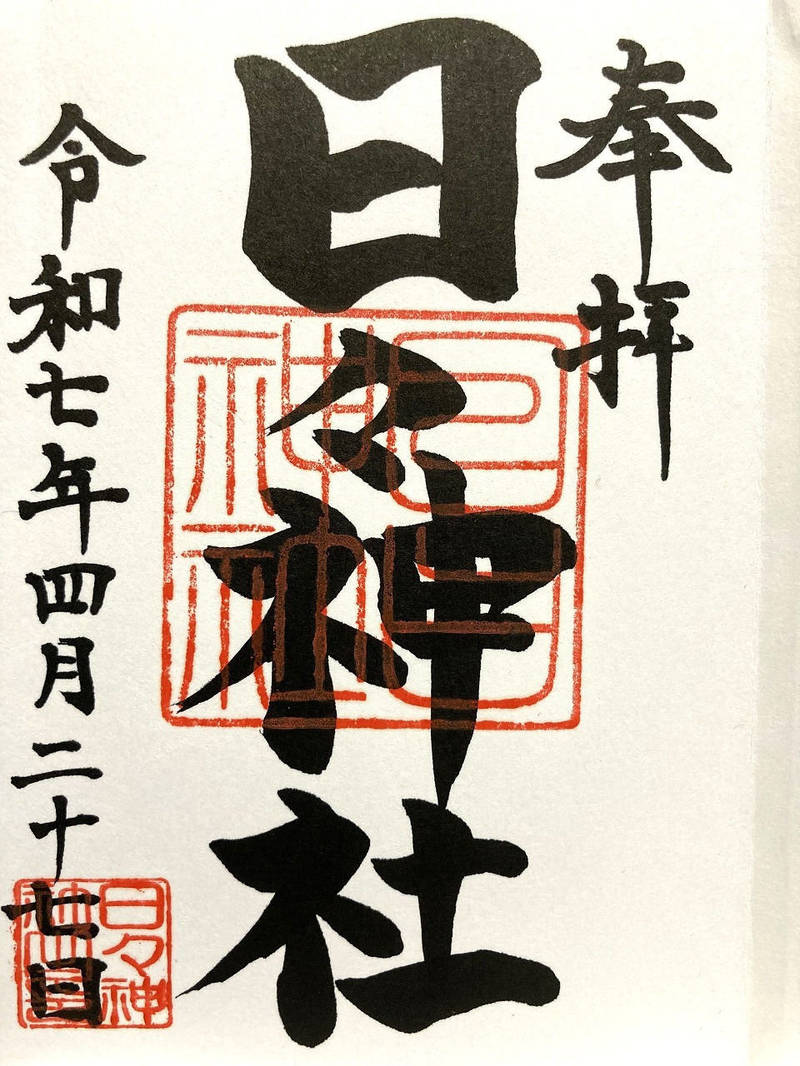 奉拝
日々神社
日日
神社
令和七年四月二十七日
日々神